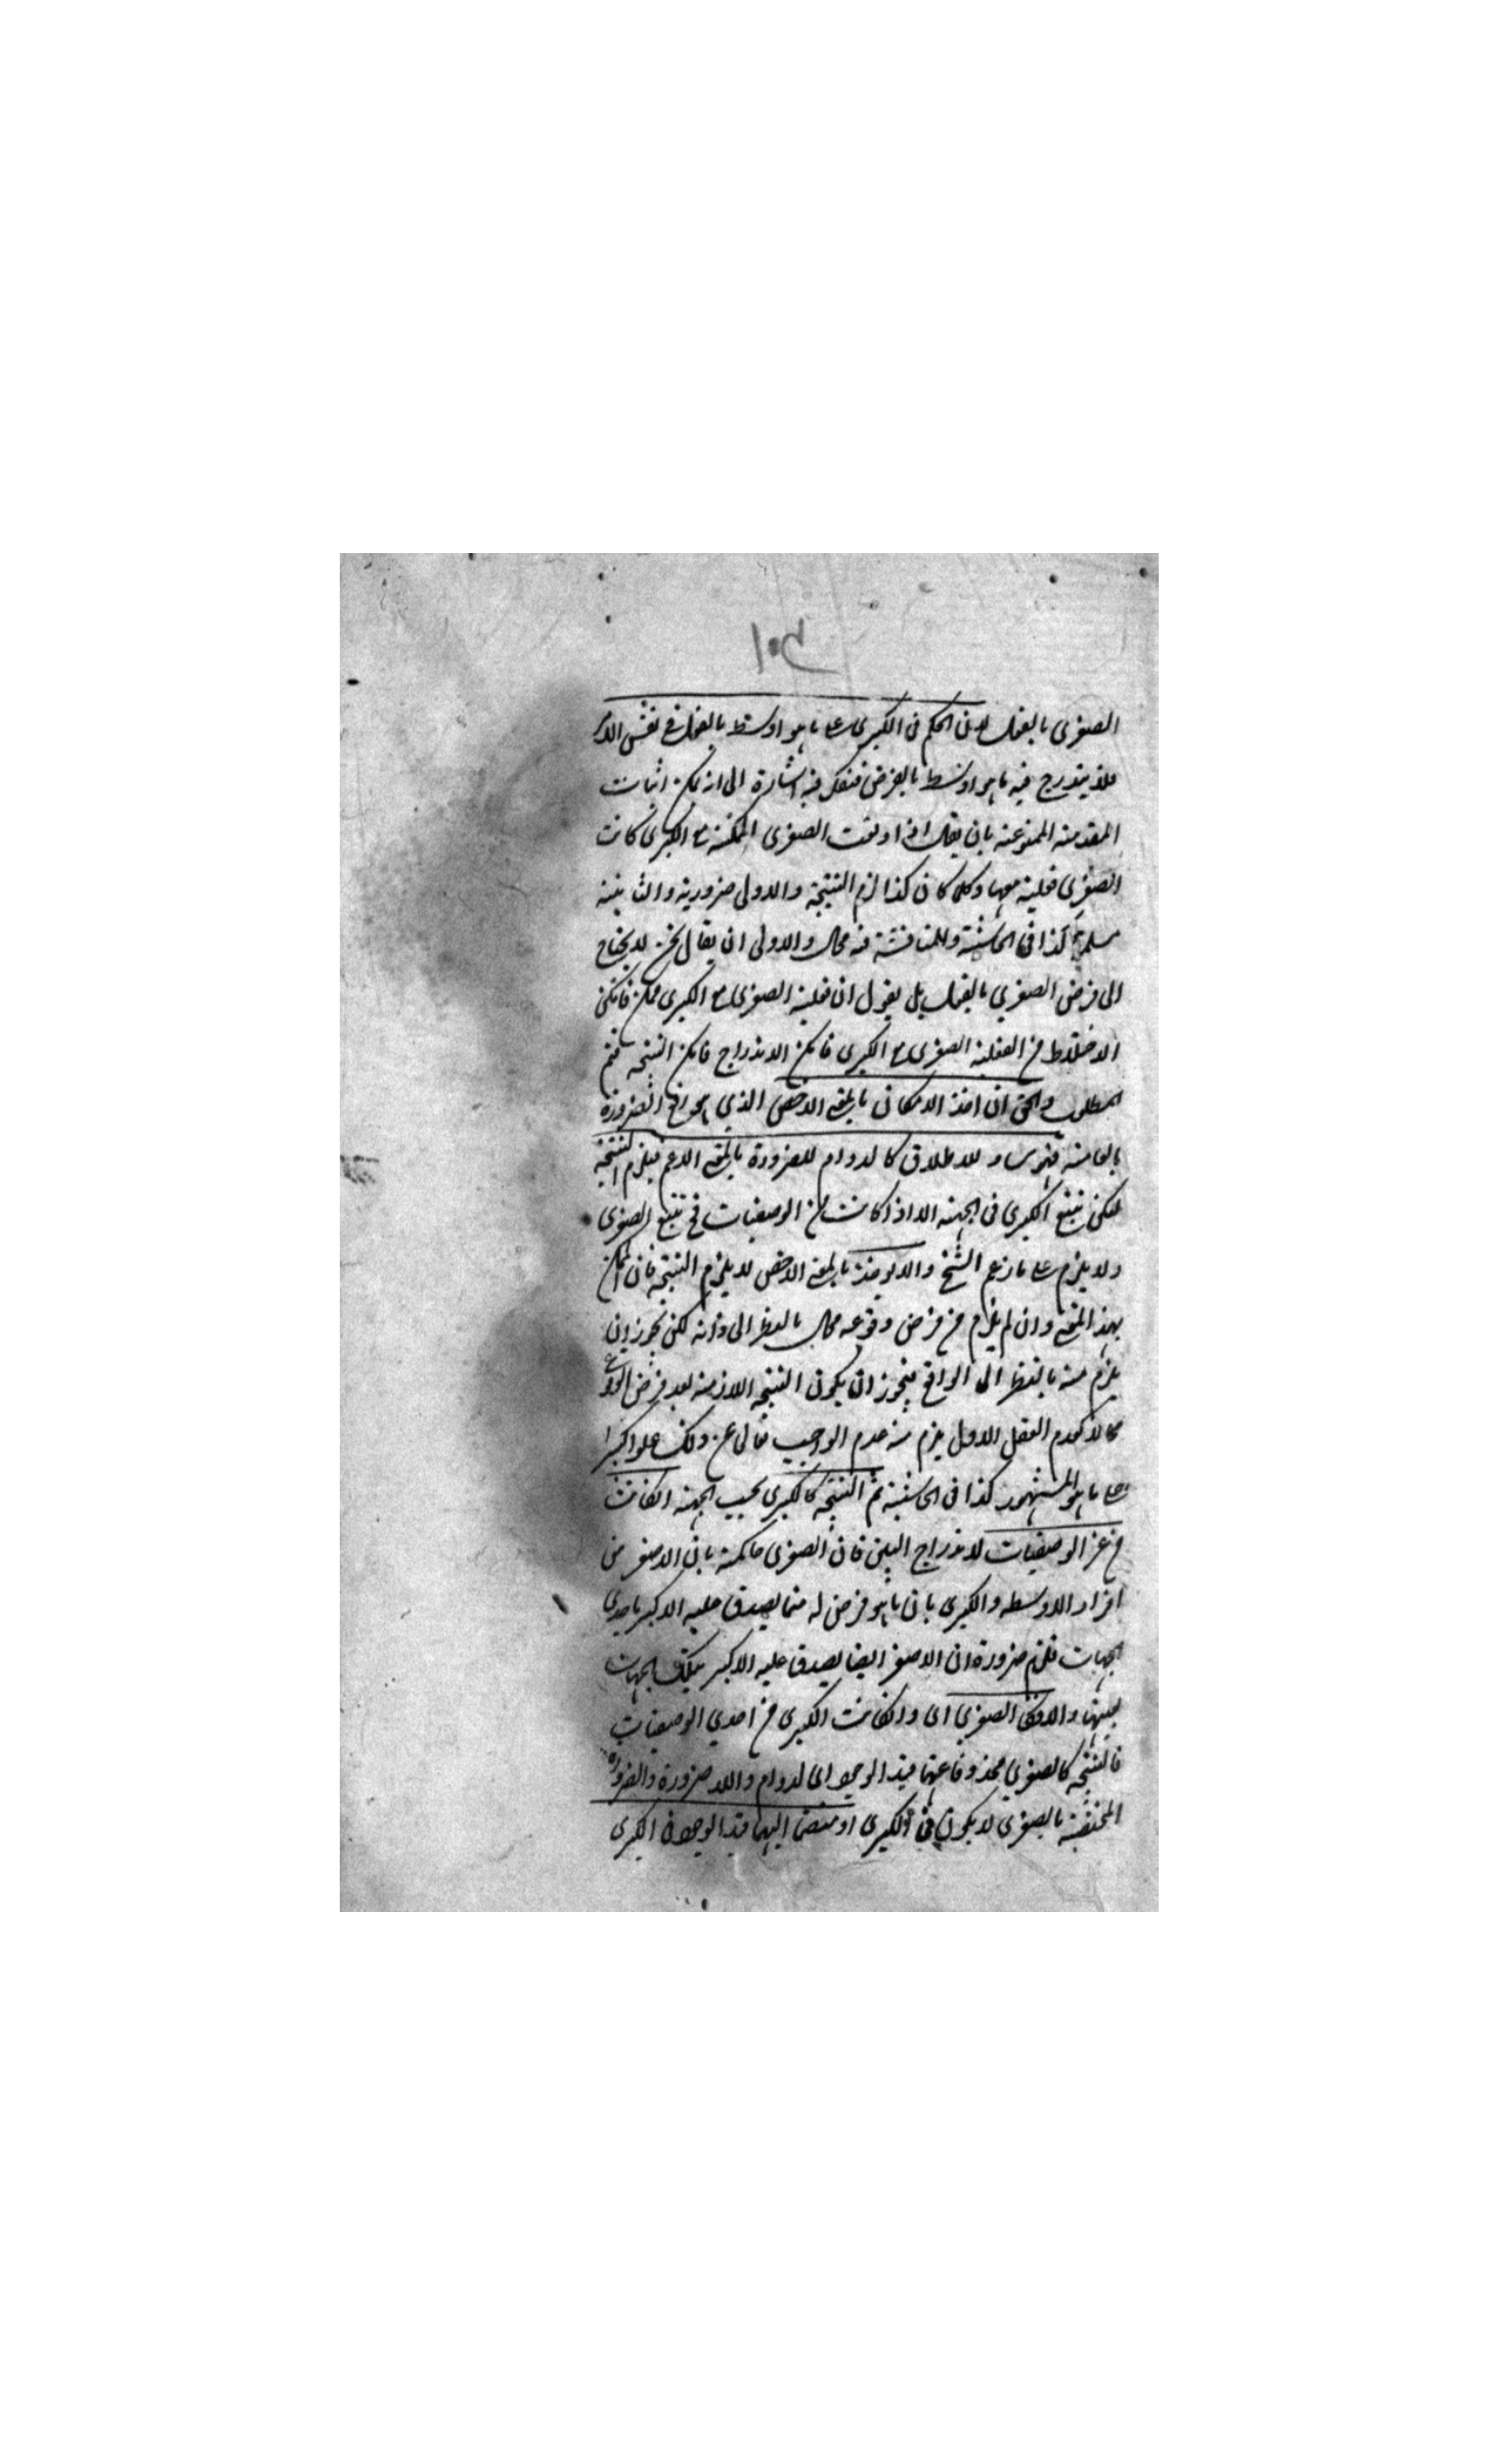 الصغرى بالفعل لان الحكم فى الكبرى على ما هو اوسط بالفعل فى نفس الامر
فلا يندرج فيه ما هو اوسط بالفرض فتفكر فيه اشارة الى انه يمكن اثبات
المقدمة الممنوعة بان يقال اذا وقعت الصغرى الممكنة مع الكبرى كانت
الصغرى فعلية معها وكلما كان كذا لزم النتيجة والاولى ضرورية والثانية
مسلمة كذا فى الحاشية وللمناقشة فيه مجال والاولى ان يقال نحن لا نحتاج
الى فرض الصغرى بالفعل بل نقول ان فعلية الصغرى مع الكبرى ممكن فامكن
الاختلاط من الفعلية الصغرى مع الكبرى فامكن الاندراج فامكن النتيجة فتم
المطلوب والحق ان اخذ الامكان بالمعنى الاخص الذي هو رفع الضرورة
بالعامة فهو مساو للاطلاق كالدوام للضرورة بالمعنى الاعم فيلزم النتيجة
لكن تتبع الكبرى فى الجهة الا اذا كانت من الوصفيات فح تتبع الصغرى
ولا يلزم على ما زعم الشيخ والا لو اخذ بالمعنى الاخص لا يلزم النتيجة فان الممكن
بهذا المعنى وان لم يلزم من فرض وقوعه محال بالنظر الى ذاته لكن يجوز ان
يلزم منه بالنظر الى الواقع فيجوز ان يكون النتيجة اللازمة بعد فرض الوقوع
محالا كعدم العقل الاول يلزم منه عدم الواجب تعالى عن ذلك علوا كبيرا
على ما هو المشهور كذا فى الحاشية ثم النتيجة كالكبرى بحسب الجهة ان كانت
من غير الوصفيات للاندراج البين فان الصغرى حاكمة بان الاصغر من
افراد الاوسط والكبرى بان ما هو فرض له مما يصدق عليه الاكبر باحدى
الجهات فلزم ضرورة ان الاصغر ايضا يصدق عليه الاكبر بتلك الجهات
بعينها والا فكالصغرى اى وان كانت الكبرى من احدى الوصفيات
فالنتيجة كالصغرى محذوفا عنها قيد الوجود اى لادوام واللاضرورة والضرورة
المختصة بالصغرى لا يكون فى الكبرى او منضما اليها قيد الوجود فى الكبرى